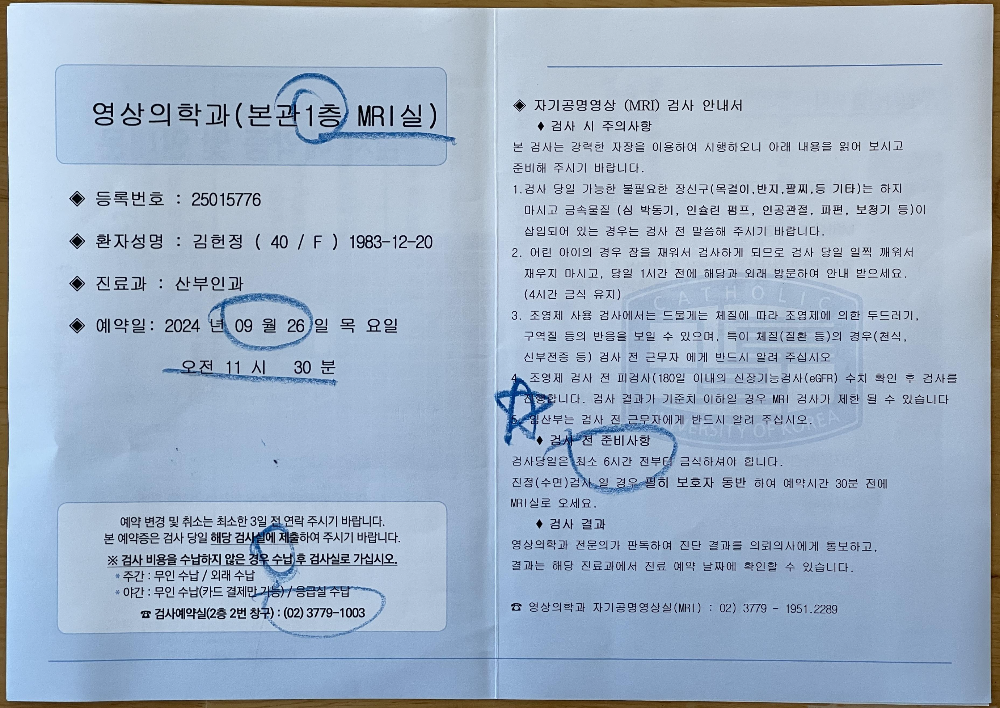 영상의학과(본관1층 MRI실)
◈ 등록번호 : 25015776
◈ 환자성명 : 김헌정 ( 40 / F ) 1983-12-20
◈ 진료과 : 산부인과
◈ 예약일: 2024 년 09 월 26 일 목 요일
오전 11 시 30 분
예약 변경 및 취소는 최소한 3일 전 연락 주시기 바랍니다.
본 예약증은 검사 당일 해당 검사실에 제출하여 주시기 바랍니다.
※ 검사 비용을 수납하지 않은 경우 수납 후 검사실로 가십시오.
* 주간 : 무인 수납 / 외래 수납
* 야간 : 무인 수납(카드 결제만 가능) / 응급실 수납
☎ 검사예약실(2층 2번 창구) : (02) 3779-1003
◈ 자기공명영상 (MRI) 검사 안내서
♦ 검사 시 주의사항
본 검사는 강력한 자장을 이용하여 시행하오니 아래 내용을 읽어 보시고
준비해 주시기 바랍니다.
1.검사 당일 가능한 불필요한 장신구(목걸이,반지,팔찌,등 기타)는 하지
마시고 금속물질 (심 박동기, 인슐린 펌프, 인공관절, 파편, 보청기 등)이
삽입되어 있는 경우는 검사 전 말씀해 주시기 바랍니다.
2. 어린 아이의 경우 잠을 재워서 검사하게 되므로 검사 당일 일찍 깨워서
재우지 마시고, 당일 1시간 전에 해당과 외래 방문하여 안내 받으세요.
(4시간 금식 유지)
3. 조영제 사용 검사에서는 드물게는 체질에 따라 조영제에 의한 두드러기,
구역질 등의 반응을 보일 수 있으며, 특이 체질(질환 등)의 경우(천식,
신부전증 등) 검사 전 근무자 에게 반드시 알려 주십시오
4. 조영제 검사 전 피검사(180일 이내의 신장기능검사(eGFR) 수치 확인 후 검사를
진행합니다. 검사 결과가 기준치 이하일 경우 MRI 검사가 제한 될 수 있습니다
5. 임산부는 검사 전 근무자에게 반드시 알려 주십시오.
♦ 검사 전 준비사항
검사당일은 최소 6시간 전부터 금식하셔야 합니다.
진정(수면)검사 일 경우 필히 보호자 동반 하여 예약시간 30분 전에
MRI실로 오세요.
♦ 검사 결과
영상의학과 전문의가 판독하여 진단 결과를 의뢰의사에게 통보하고,
결과는 해당 진료과에서 진료 예약 날짜에 확인할 수 있습니다.
☎ 영상의학과 자기공명영상실(MRI) : 02) 3779 - 1951.2289
CATHOLIC
UNIVERSITY OF KOREA